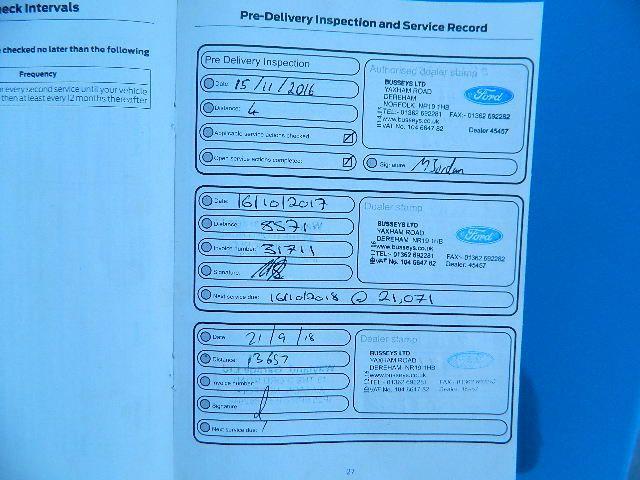 eck Intervals
checked no later than the following
Frequency
or every second service until your vehicle
then at least every 12 months thereafter
Pre-Delivery Inspection and Service Record
Pre Delivery Inspection
Date: 15/11/2016
Distance: 4
Applicable service actions checked:
Open service actions completed:
Authorised dealer stamp
BUSSEYS LTD
YAXHAM ROAD
DEREHAM
NORFOLK NR19 1HB
TEL:- 01362 692281 FAX:- 01362 692282
www.busseys.co.uk
VAT No. 104 6647 82 Dealer 45457
Ford
Signature: M Jordan
Date: 16/10/2017
Distance: 8571
Invoice number: 31711
Signature:
Next service due: 16/10/2018 @ 21,071
Dealer stamp
BUSSEYS LTD
YAXHAM ROAD
DEREHAM NR19 1HB
TEL:- 01362 692281 FAX:- 01362 692282
www.busseys.co.uk
VAT No. 104 6647 82 Dealer: 45457
Ford
Date: 21/9/18
Distance: 13657
Invoice number:
Signature:
Next service due:
Dealer stamp
BUSSEYS LTD
YAXHAM ROAD
DEREHAM NR19 1HB
www.busseys.co.uk
TEL:- 01362 692281 FAX:- 01362 692282
VAT No. 104 6647 82 Dealer: 45457
27